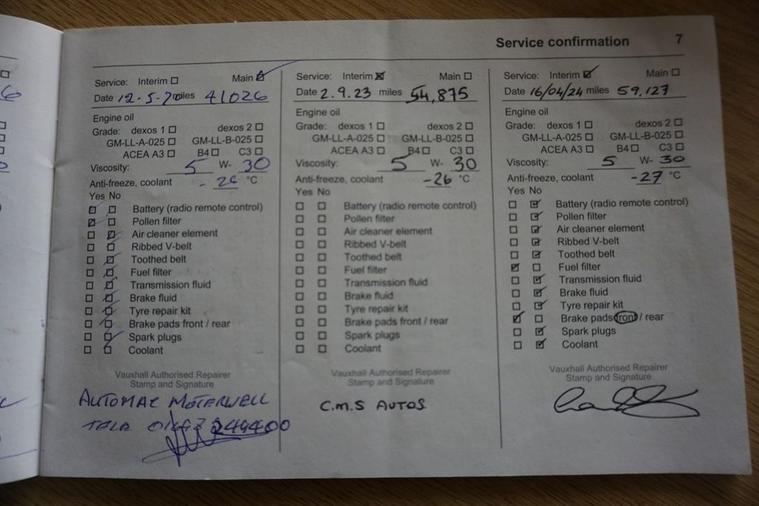 Service confirmation 7
Service: Interim Main
Date 12-5-20 miles 41026
Engine oil
Grade: dexos 1 dexos 2
GM-LL-A-025 GM-LL-B-025
ACEA A3 B4 C3
Viscosity: 5 W- 30
Anti-freeze, coolant -26 °C
Yes No
Battery (radio remote control)
Pollen filter
Air cleaner element
Ribbed V-belt
Toothed belt
Fuel filter
Transmission fluid
Brake fluid
Tyre repair kit
Brake pads front / rear
Spark plugs
Coolant
Vauxhall Authorised Repairer
Stamp and Signature
AUTOMAC MOTERWELL
Service: Interim Main
Date 2.9.23 miles 54,875
Engine oil
Grade: dexos 1 dexos 2
GM-LL-A-025 GM-LL-B-025
ACEA A3 B4 C3
Viscosity: 5 W- 30
Anti-freeze, coolant -26 °C
Yes No
Battery (radio remote control)
Pollen filter
Air cleaner element
Ribbed V-belt
Toothed belt
Fuel filter
Transmission fluid
Brake fluid
Tyre repair kit
Brake pads front / rear
Spark plugs
Coolant
Vauxhall Authorised Repairer
Stamp and Signature
C.M.S AUTOS
Service: Interim Main
Date 16/04/24 miles 59,127
Engine oil
Grade: dexos 1 dexos 2
GM-LL-A-025 GM-LL-B-025
ACEA A3 B4 C3
Viscosity: 5 W- 30
Anti-freeze, coolant -27 °C
Yes No
Battery (radio remote control)
Pollen filter
Air cleaner element
Ribbed V-belt
Toothed belt
Fuel filter
Transmission fluid
Brake fluid
Tyre repair kit
Brake pads front / rear
Spark plugs
Coolant
Vauxhall Authorised Repairer
Stamp and Signature